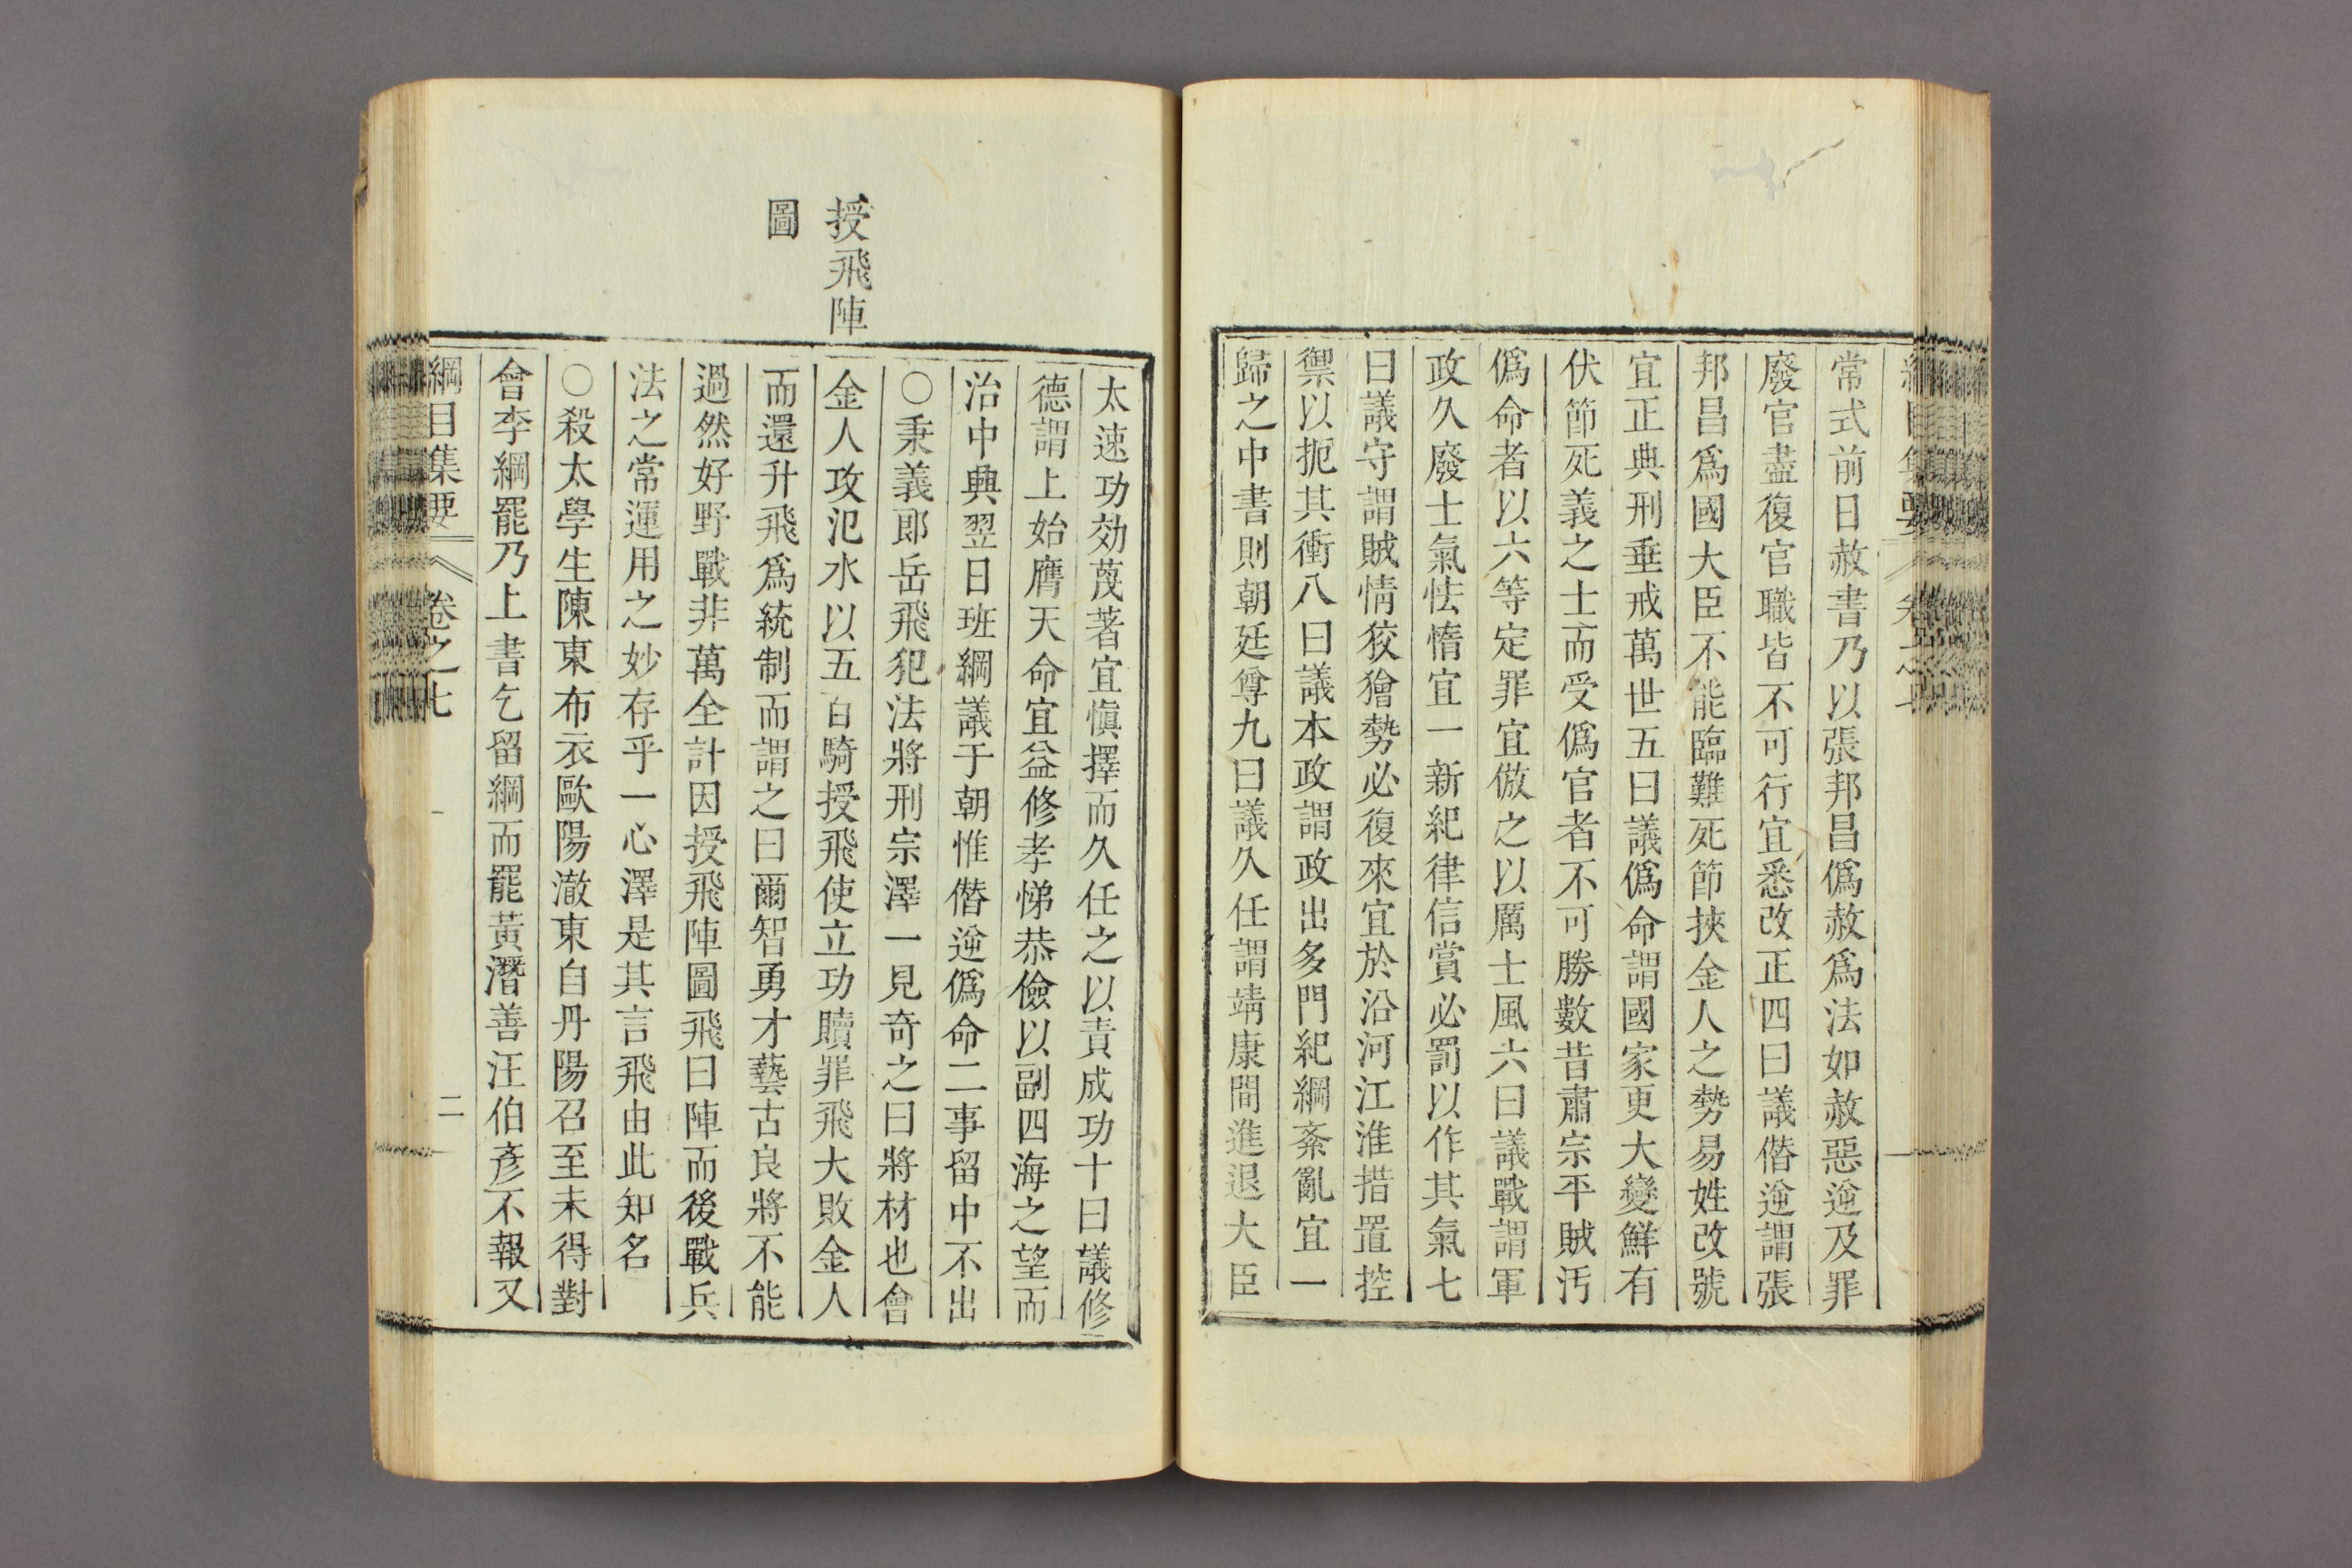 常式前日赦書乃以張邦昌僞赦爲法如赦惡逆及罪
廢官盡復官職皆不可行宜悉改正四曰議僭逆謂張
邦昌爲國大臣不能臨難死節挾金人之勢易姓改號
宜正典刑垂戒萬世五曰議僞命謂國家更大變鮮有
伏節死義之士而受僞官者不可勝數昔肅宗平賊汚
僞命者以六等定罪宜倣之以厲士風六曰議戰謂軍
政久廢士氣怯惰宜一新紀律信賞必罰以作其氣七
曰議守謂賊情狡獪勢必復來宜於沿河江淮措置控
禦以扼其衝八曰議本政謂政出多門紀綱紊亂宜一
歸之中書則朝廷尊九曰議久任謂靖康間進退大臣
太速功効蔑著宜愼擇而久任之以責成功十曰議修
德謂上始膺天命宜益修孝悌恭儉以副四海之望而
治中興翌日班綱議于朝惟僭逆僞命二事留中不出
授飛陣
圖
○秉義郎岳飛犯法將刑宗澤一見奇之曰將材也會
金人攻汜水以五百騎授飛使立功贖罪飛大敗金人
而還升飛爲統制而謂之曰爾智勇才藝古良將不能
過然好野戰非萬全計因授飛陣圖飛曰陣而後戰兵
法之常運用之妙存乎一心澤是其言飛由此知名
○殺太學生陳東布衣歐陽澈東自丹陽召至未得對
會李綱罷乃上書乞留綱而罷黃潛善汪伯彥不報又
綱目集要 卷之七 二